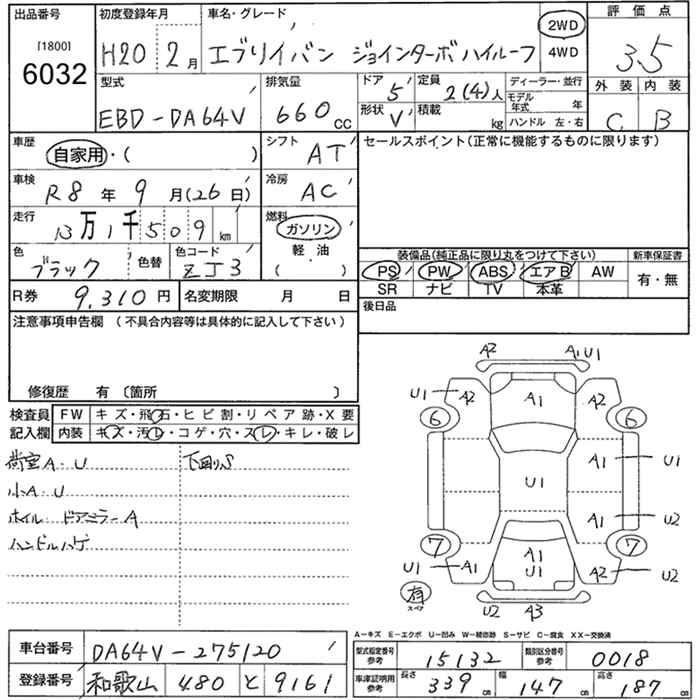 出品番号 初度登録年月 車名・グレード 評価点
[1800]
6032
H20 2月 エブリイバン ジョインターボハイルーフ 2WD 4WD 3.5
型式 排気量 ドア 定員 ディーラー・並行 外装 内装
EBD-DA64V 660cc 5 2(4)人 モデル年式 年 C B
形状 V 積載 kg ハンドル 左・右
車歴 自家用・( ) シフト AT セールスポイント(正常に機能するものに限ります)
車検 R8年9月(26日) 冷房 AC
走行 13万1千509km 燃料 ガソリン 軽・油 ( )
色 ブラック 色替 色コード ZJ3
装備品(純正品に限り丸をつけて下さい) 新車保証書
PS PW ABS エアB AW 有・無
SR ナビ TV 本革
R券 9,310円 名変期限 月 日 後日品
注意事項申告欄 (不具合内容等は具体的に記入して下さい)
修復歴 有〔箇所 〕
検査員 FW キズ・飛石・ヒビ割・リペア跡・X要
記入欄 内装 キズ・汚レ・コゲ・穴・スレ・キレ・破レ
荷室A.U 下回りS
小A.U
ホイル ドアミラーA
ハンドルハゲ
A2 A1 U1
U1 A2 A1 A2 U1
6 6
A1 U1
U1
A1 U2
7 7
U1 A1 A1 U1 A2 U2
有 スペア
U2 A3
A−キズ E−エクボ U−凹み W−補修跡 S−サビ C−腐食 XX−交換済
車台番号 DA64V-275120
型式指定番号 参考 15132 類別区分番号 参考 0018
登録番号 和歌山 480 と 9161
車庫証明用 参考 長さ 339cm 幅 147cm 高さ 187cm